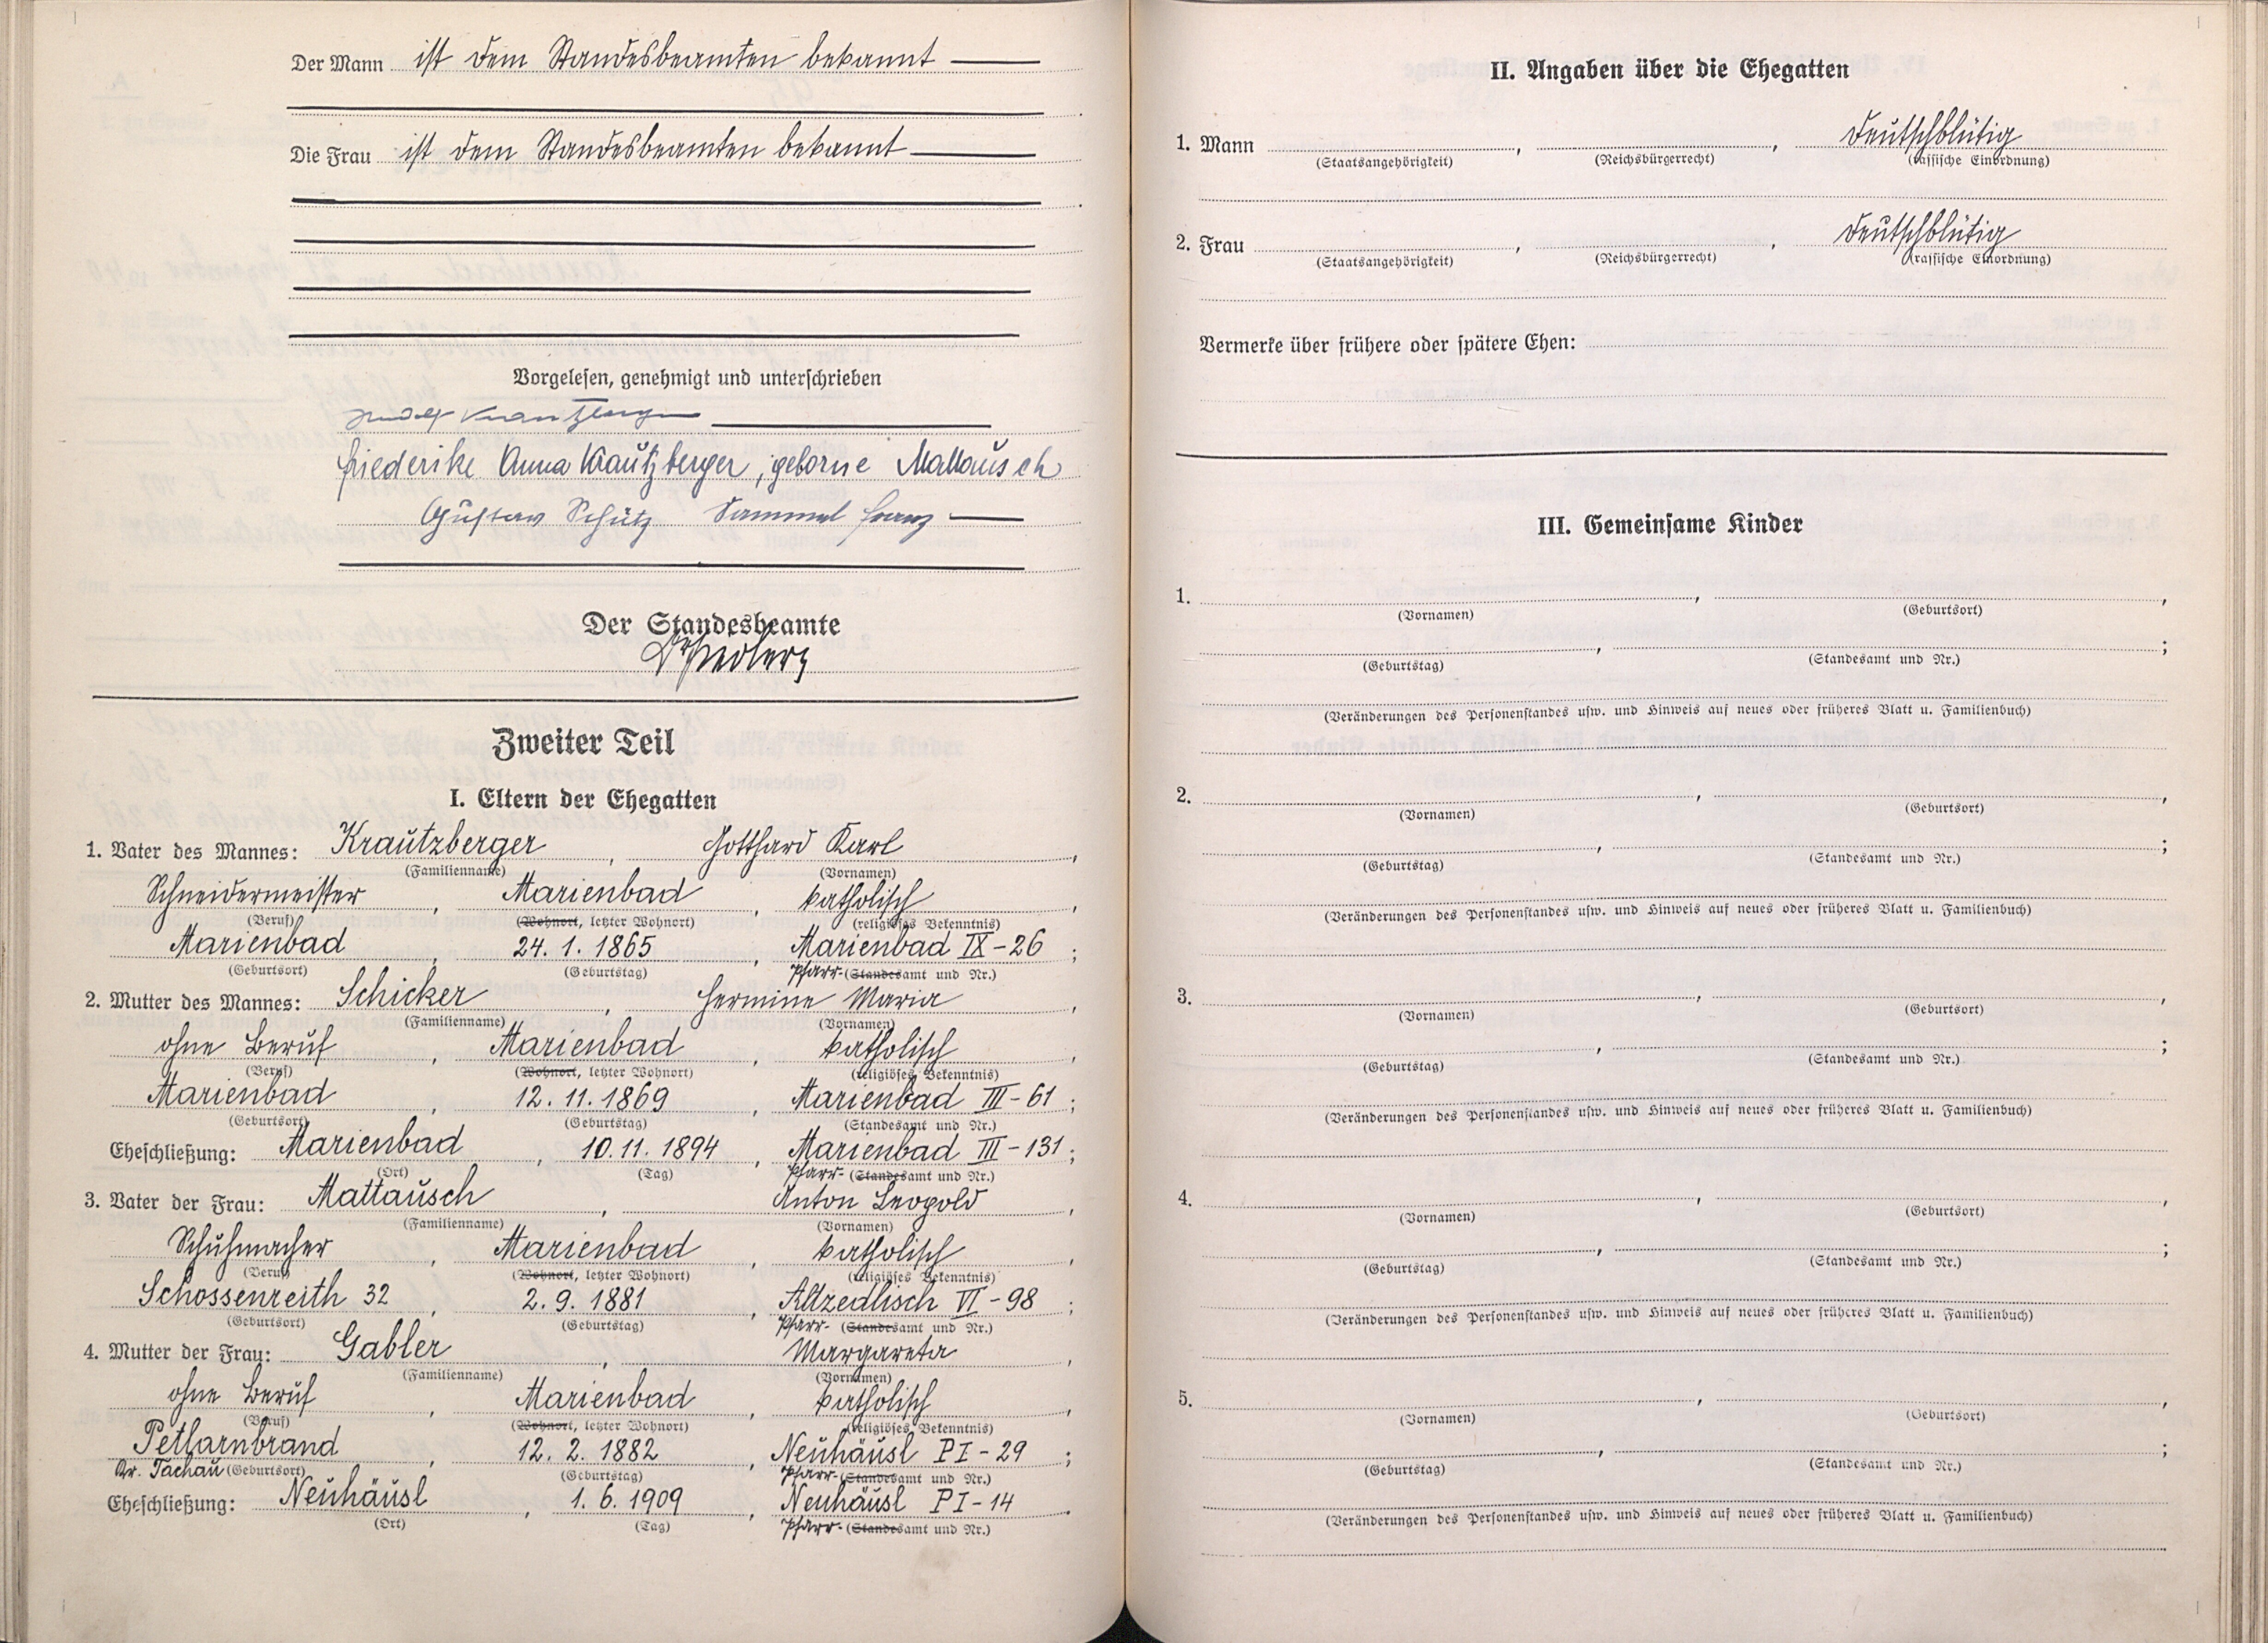 Der Mann ist dem Standesbeamten bekannt
Die Frau ist dem Standesbeamten bekannt
Vorgelesen, genehmigt und unterschrieben
Rudolf Krautzberger
Friederike Anna Krautzberger, geborne Mattausch
Gustav Schütz Sammel Franz
Der Standesbeamte
Zweiter Teil
I. Eltern der Ehegatten
1. Vater des Mannes: Krautzberger, Gotthard Karl,
(Familienname) (Vornamen)
Schneidermeister, Marienbad, katholisch,
(Beruf) (Wohnort, letzter Wohnort) (religiöses Bekenntnis)
Marienbad, 24. 1. 1865, Marienbad IX-26;
(Geburtsort) (Geburtstag) Pfarr-(Standesamt und Nr.)
2. Mutter des Mannes: Schicker, Hermine Maria,
(Familienname) (Vornamen)
ohne Beruf, Marienbad, katholisch,
(Beruf) (Wohnort, letzter Wohnort) (religiöses Bekenntnis)
Marienbad, 12. 11. 1869, Marienbad III-61;
(Geburtsort) (Geburtstag) (Standesamt und Nr.)
Eheschließung: Marienbad, 10. 11. 1894, Marienbad III-131;
(Ort) (Tag) Pfarr-(Standesamt und Nr.)
3. Vater der Frau: Mattausch, Anton Leopold,
(Familienname) (Vornamen)
Schuhmacher, Marienbad, katholisch,
(Beruf) (Wohnort, letzter Wohnort) (religiöses Bekenntnis)
Schossenreith 32, 2. 9. 1881, Altzedlisch VI-98;
(Geburtsort) (Geburtstag) Pfarr-(Standesamt und Nr.)
4. Mutter der Frau: Gabler, Margareta,
(Familienname) (Vornamen)
ohne Beruf, Marienbad, katholisch,
(Beruf) (Wohnort, letzter Wohnort) (religiöses Bekenntnis)
Petlarnbrand, 12. 2. 1882, Neuhäusl PI-29;
Kr. Tachau (Geburtsort) (Geburtstag) Pfarr-(Standesamt und Nr.)
Eheschließung: Neuhäusl, 1. 6. 1909, Neuhäusl PI-14.
(Ort) (Tag) Pfarr-(Standesamt und Nr.)
II. Angaben über die Ehegatten
1. Mann , , deutschblütig
(Staatsangehörigkeit) (Reichsbürgerrecht) (rassische Einordnung)
2. Frau , , deutschblütig
(Staatsangehörigkeit) (Reichsbürgerrecht) (rassische Einordnung)
Vermerke über frühere oder spätere Ehen:
III. Gemeinsame Kinder
1. , ,
(Vornamen) (Geburtsort)
, ;
(Geburtstag) (Standesamt und Nr.)
(Veränderungen des Personenstandes usw. und Hinweis auf neues oder früheres Blatt u. Familienbuch)
2. , ,
(Vornamen) (Geburtsort)
, ;
(Geburtstag) (Standesamt und Nr.)
(Veränderungen des Personenstandes usw. und Hinweis auf neues oder früheres Blatt u. Familienbuch)
3. , ,
(Vornamen) (Geburtsort)
, ;
(Geburtstag) (Standesamt und Nr.)
(Veränderungen des Personenstandes usw. und Hinweis auf neues oder früheres Blatt u. Familienbuch)
4. , ,
(Vornamen) (Geburtsort)
, ;
(Geburtstag) (Standesamt und Nr.)
(Veränderungen des Personenstandes usw. und Hinweis auf neues oder früheres Blatt u. Familienbuch)
5. , ,
(Vornamen) (Geburtsort)
, ;
(Geburtstag) (Standesamt und Nr.)
(Veränderungen des Personenstandes usw. und Hinweis auf neues oder früheres Blatt u. Familienbuch)